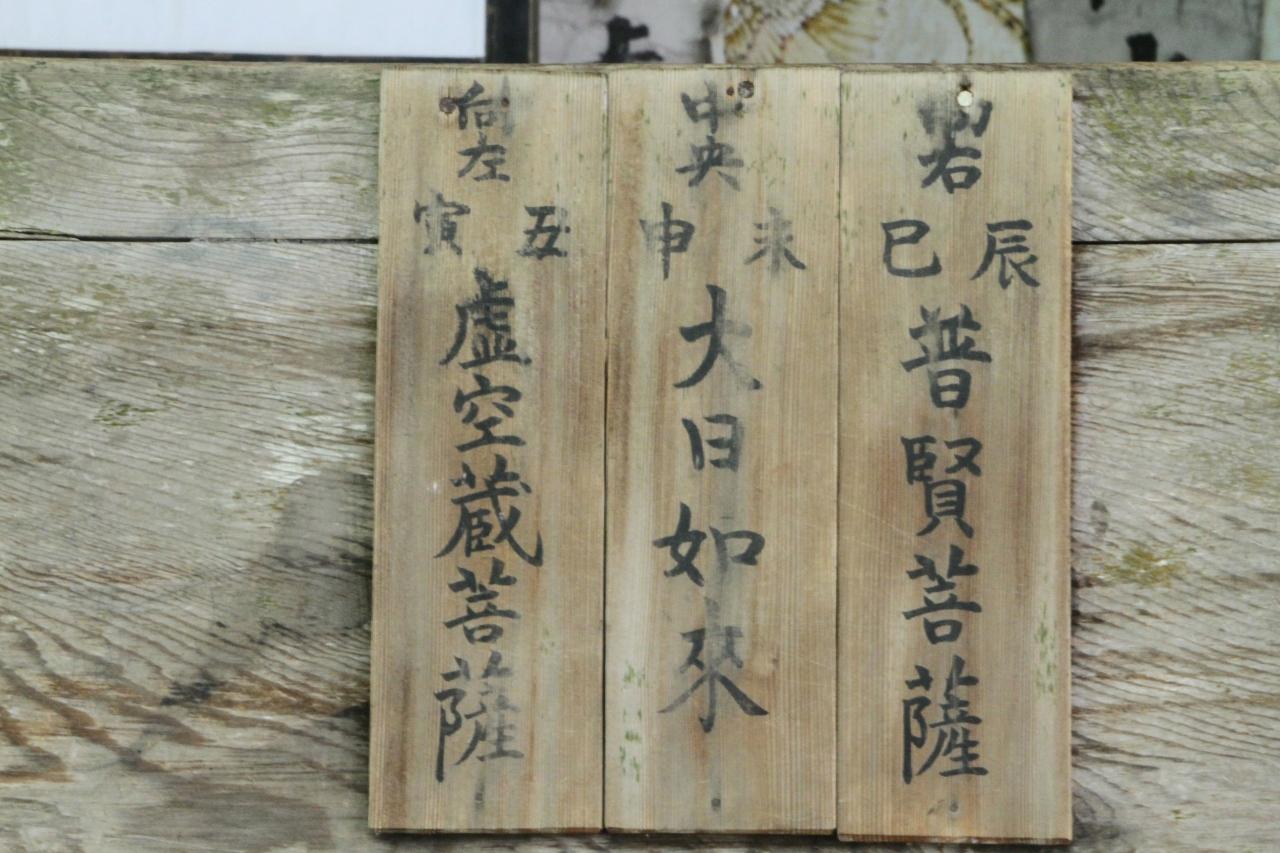 向右
辰 巳
普賢菩薩
中央
未 申
大日如來
向左
丑 寅
虚空蔵菩薩